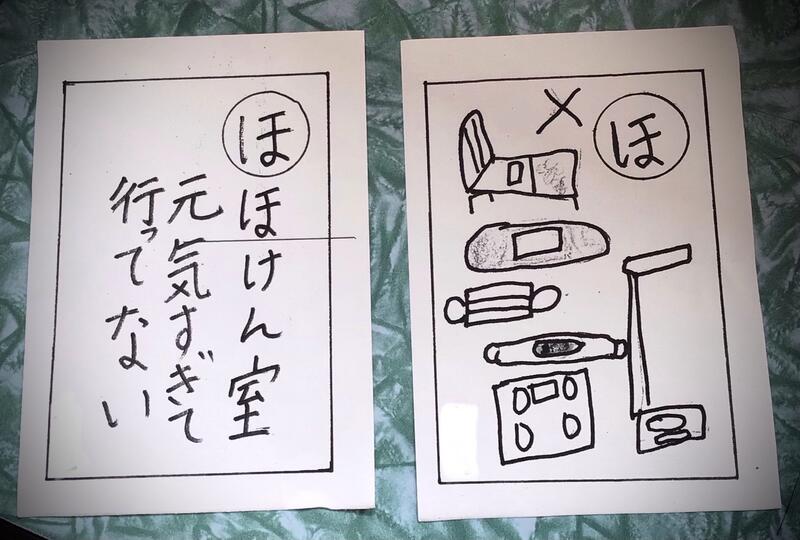 ほ
ほけん室
元気すぎて
行ってない
ほ